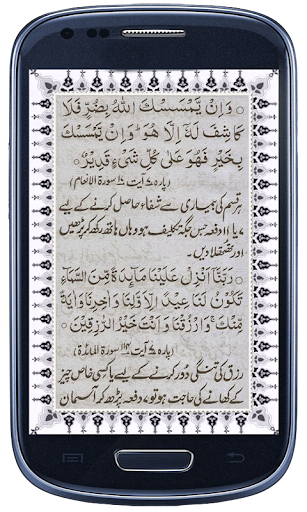 وَاِنْ يَّمْسَسْكَ اللّٰهُ بِضُرٍّ فَلَا
كَاشِفَ لَهٗٓ اِلَّا هُوَ ۚ وَاِنْ يَّمْسَسْكَ
بِخَيْرٍ فَهُوَ عَلٰى كُلِّ شَىْءٍ قَدِيْرٌ ○
(پارہ ۷ آیت ۱۷ سورۃ الانعام)
ہر قسم کی بیماری سے شفاء حاصل کرنے کے لیے
۷ یا ۱۱ دفعہ جس جگہ تکلیف ہو وہاں ہاتھ رکھ کر پڑھیں
اور تھتھکلا دیں۔
رَبَّنَآ اَنْزِلْ عَلَيْنَا مَآئِدَةً مِّنَ السَّمَآءِ
تَكُوْنُ لَنَا عِيْدًا لِّاَوَّلِنَا وَاٰخِرِنَا وَاٰيَةً
مِّنْكَ ۚ وَارْزُقْنَا وَاَنْتَ خَيْرُ الرّٰزِقِيْنَ ○
(پارہ ۷ آیت ۱۱۴ سورۃ المائدۃ)
رزق کی تنگی دور کرنے کے لیے یا کسی خاص چیز
کے کھانے کی حاجت ہو تو ۷ دفعہ پڑھ کر آسمان